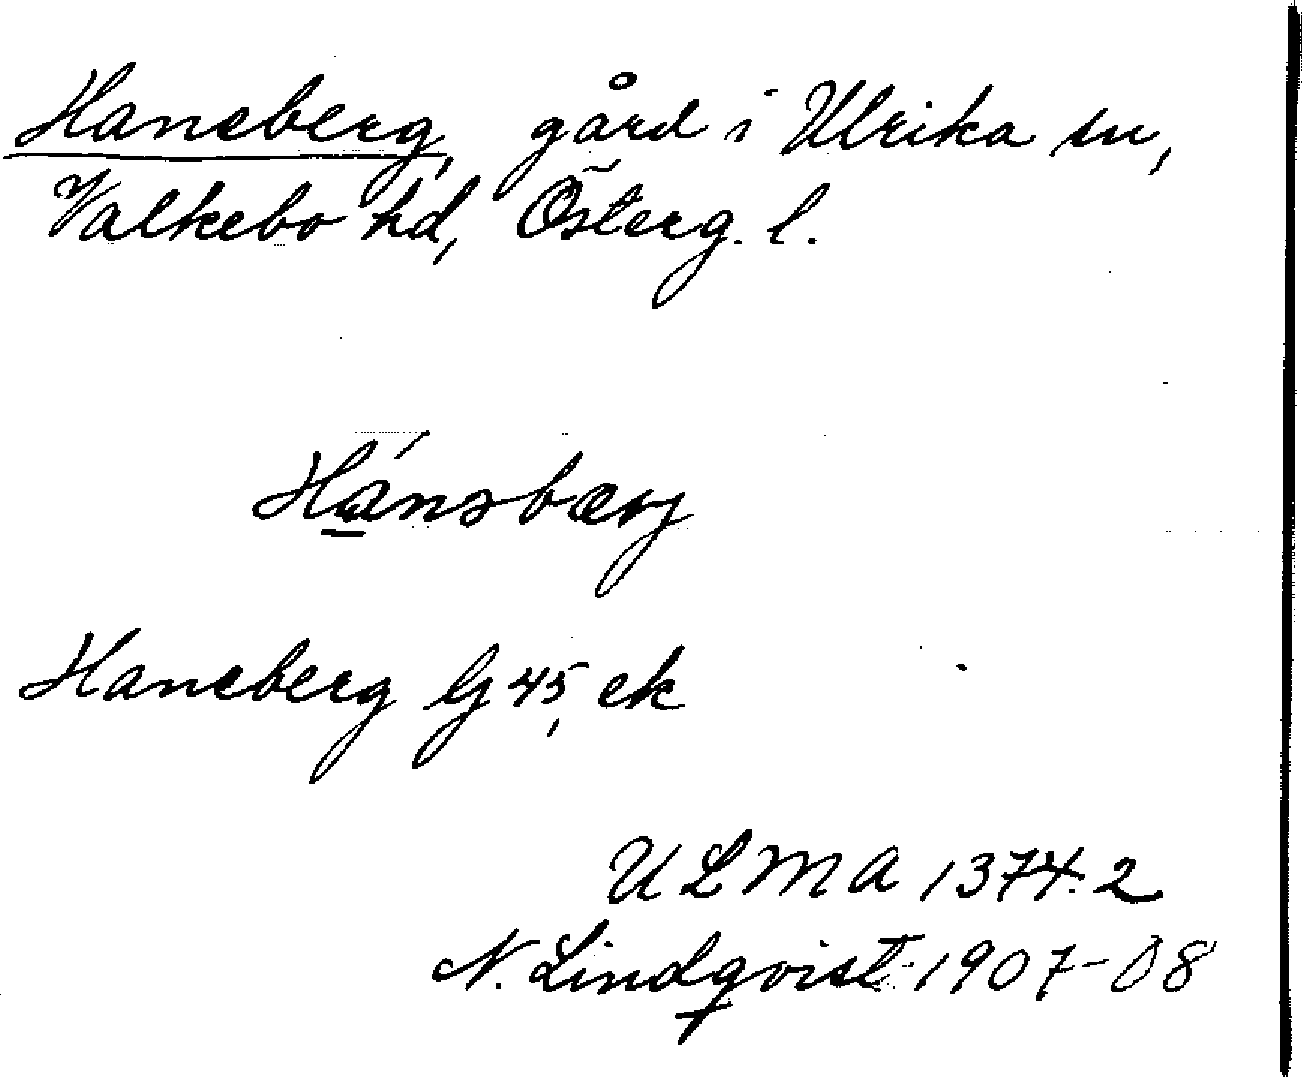 Haneberg, gård i Ulrika sn,
Valkebo hd, Österg. l.
Hánəbærj
Haneberg G 45, ek
ULMA 1374:2
N. Lindqvist 1907-08